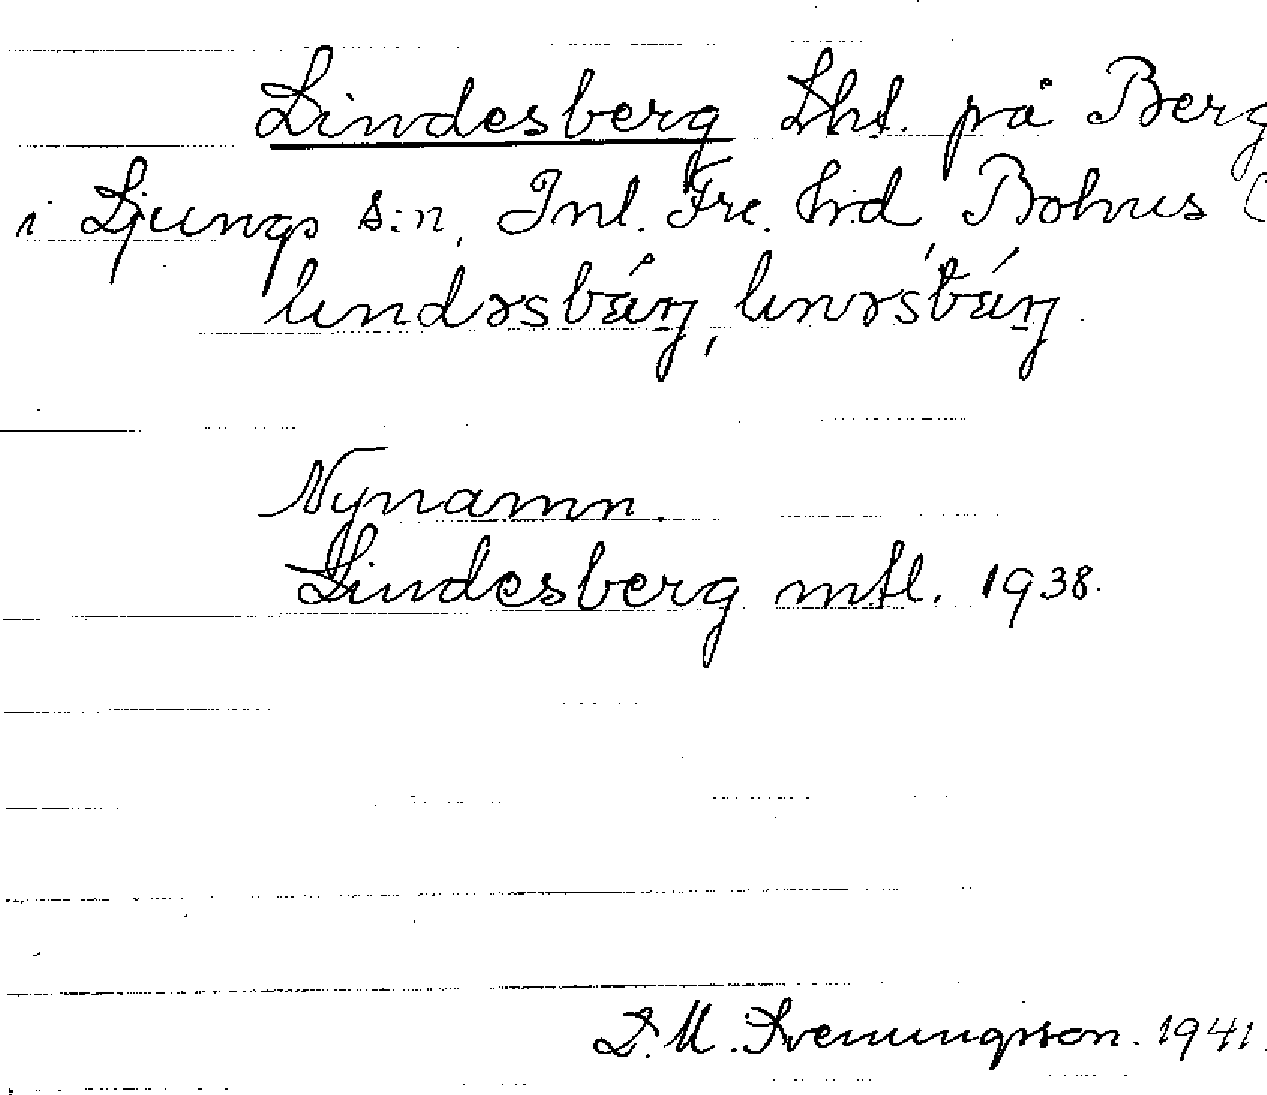 Lindesberg Lht. på Berg
i Ljungs s:n, Inl. Fre. hd, Bohus
lindəsbárj, linəsbárj.
Nynamn.
Lindesberg mtl. 1938.
D. M. Svenungsson. 1941.